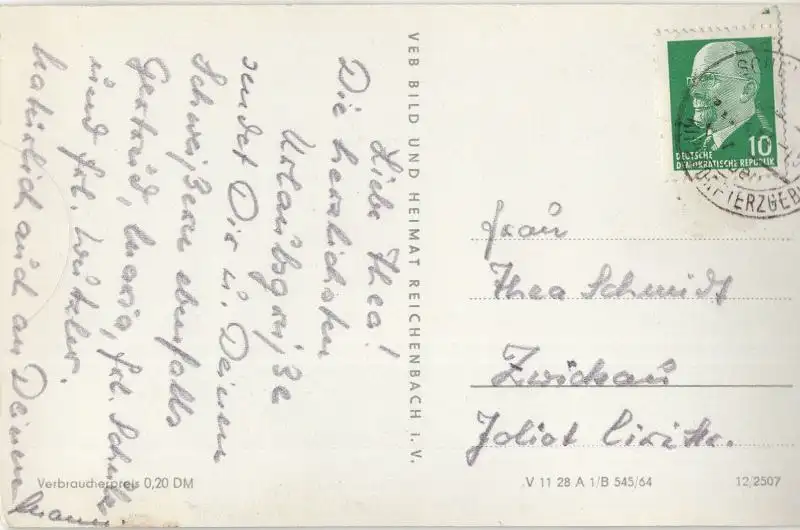 Liebe Thea!
Die herzlichsten
Urlaubsgrüße
sendet Dir u. Deinen
Schweißern ebenfalls
Gertraid, Maria, Frl. Schulze
und Frl.
natürlich auch an Deinen
Mann.
VEB BILD UND HEIMAT REICHENBACH i. V.
10
DEUTSCHE
DEMOKRATISCHE REPUBLIK
ERZGEB
Frau
Thea Schmidt
Zwickau
Joliot Curi Str.
Verbraucherpreis 0,20 DM
V 11 28 A 1/B 545/64
12/2507